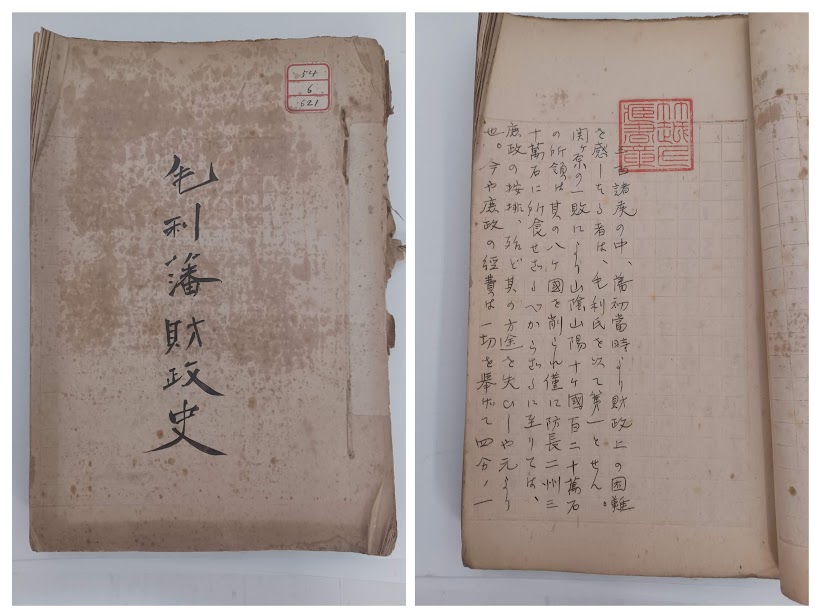 54
6
621
毛利藩財政史
三百諸侯の中、藩初當時より財政上の困難
を感したる者は、毛利氏を以て第一とせん。
関ヶ原の一敗により山陰山陽十ヶ國百二十萬石
の所領は其の八ヶ國を削られ僅に防長二州三
十萬石に食せざるべからざるに至りては、
庶政の按排、殆ど其の方途を失ひしや元より
也。今や庶政の經費は一切を擧げて四分ノ一